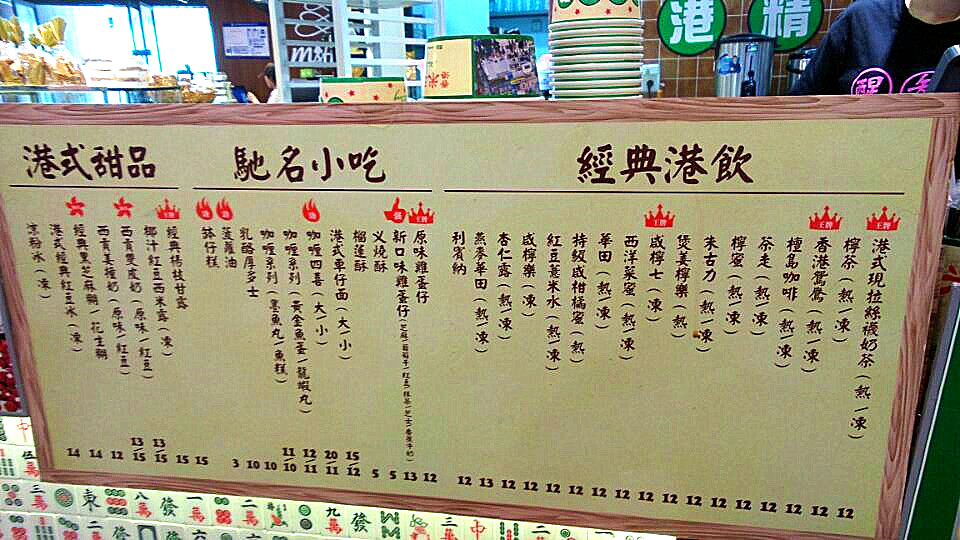 港
精
醒
港式甜品
馳名小吃
經典港飲
港式現拉絲襪奶茶(熱/凍) 12
檸茶(熱/凍) 12
香港鴛鴦(熱/凍) 12
檀島咖啡(熱/凍) 12
茶走(熱/凍) 12
檸蜜(熱/凍) 12
朱古力(熱/凍) 12
煲姜檸樂(熱) 12
咸檸七(凍) 12
西洋菜蜜(熱/凍) 12
華田(熱/凍) 12
特級咸柑橘蜜(熱) 12
紅豆薏米水(熱/凍) 12
咸檸樂(凍) 12
杏仁露(熱/凍) 12
燕麥華田(熱/凍) 13
利賓納 12
原味雞蛋仔 12
新口味雞蛋仔(芝麻/葡萄干/紅豆/抹茶/芝士/香蕉干奶) 13
义燒酥 5
榴蓮酥 5
港式車仔面(大/小) 15/12
咖喱四喜(大/小) 20/11
咖喱系列(黃金魚蛋/龍蝦丸) 12/10
咖喱系列(墨魚丸/魚糕) 11/10
乳酪厚多士 10
菠蘿油 10
砵仔糕 3
經典楊枝甘露 15
椰汁紅豆西米露(凍) 15
西貢雙皮奶(原味/紅豆) 13/15
西貢姜撞奶(原味/紅豆) 13/15
經典黑芝麻糊/花生糊 12
港式經典紅豆冰(凍) 14
涼粉冰(凍) 14
王牌
王牌
王牌
王牌
王牌